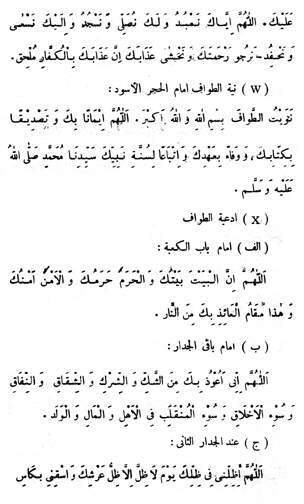 عَلَيْكَ . اَللّٰهُمَّ اِيَّاكَ نَعْبُدُ وَلَكَ نُصَلِّى وَنَسْجُدُ وَاِلَيْكَ نَسْعٰى
وَنَحْفِدُ - نَرْجُو رَحْمَتَكَ وَنَخْشٰى عَذَابَكَ اِنَّ عَذَابَكَ بِالْكُفَّارِ مُلْحِقٌ .
( w ) نية الطواف امام الحجر الاسود :
نَوَيْتُ الطَّوَافَ بِسْمِ اللهِ وَاللهُ اَكْبَرُ . اَللّٰهُمَّ اِيْمَانًا بِكَ وَتَصْدِيْقًا
بِكِتَابِكَ ، وَوَفَاءً بِعَهْدِكَ وَاتِّبَاعًا لِسُنَّةِ نَبِيِّكَ سَيِّدِنَا مُحَمَّدٍ صَلَّى اللهُ
عَلَيْهِ وَسَلَّمَ .
( x ) ادعية الطواف
( الف ) امام باب الكعبة :
اَللّٰهُمَّ اِنَّ الْبَيْتَ بَيْتُكَ وَالْحَرَمُ حَرَمُكَ وَالْاَمْنُ اَمْنُكَ
وَهٰذَا مَقَامُ الْعَائِذِ بِكَ مِنَ النَّارِ .
( ب ) امام باقى الجدار :
اَللّٰهُمَّ اِنِّى اَعُوْذُ بِكَ مِنَ الشَّكِّ وَالشِّرْكِ وَالشِّقَاقِ وَالنِّفَاقِ
وَسُوْءِ الْاَخْلَاقِ وَسُوْءِ الْمُنْقَلَبِ فِى الْاَهْلِ وَالْمَالِ وَالْوَلَدِ .
( ج ) عند الجدار الثانى :
اَللّٰهُمَّ اَظِلَّنِى فِى ظِلِّكَ يَوْمَ لَا ظِلَّ اِلَّا ظِلُّ عَرْشِكَ وَاسْقِنِى بِكَاْسِ